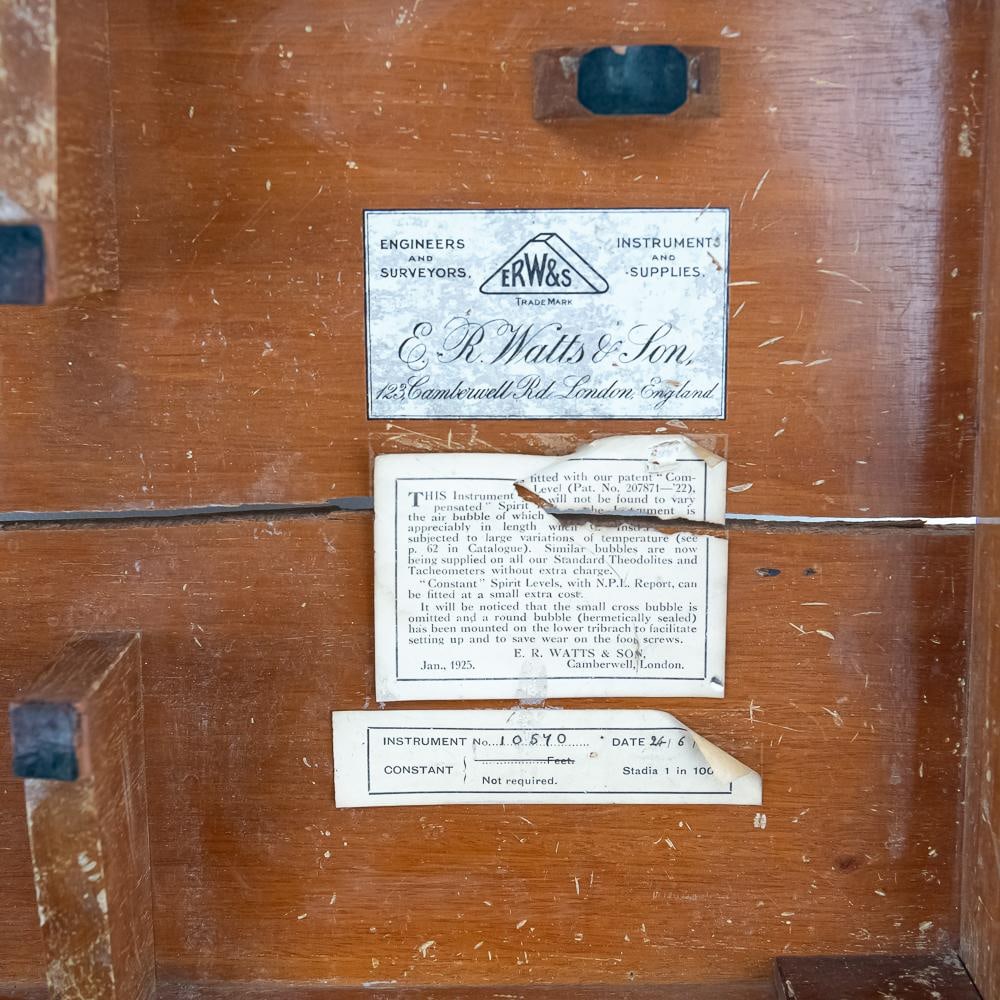 ENGINEERS AND SURVEYORS.
ERW&S
TRADE MARK
INSTRUMENTS AND SUPPLIES.
E. R. Watts & Son,
123, Camberwell Rd London, England
THIS Instrument fitted with our patent "Com-
pensated" Spirit Level (Pat. No. 207871—'22),
the air bubble of which will not be found to vary
appreciably in length when the Instrument is
subjected to large variations of temperature (see
p. 62 in Catalogue). Similar bubbles are now
being supplied on all our Standard Theodolites and
Tacheometers without extra charge.
"Constant" Spirit Levels, with N.P.L. Report, can
be fitted at a small extra cost.
It will be noticed that the small cross bubble is
omitted and a round bubble (hermetically sealed)
has been mounted on the lower tribrach to facilitate
setting up and to save wear on the foot screws.
E. R. WATTS & SON,
Jan., 1925. Camberwell, London.
INSTRUMENT No. 10570 DATE 24/6/
CONSTANT Feet.
Not required. Stadia 1 in 100